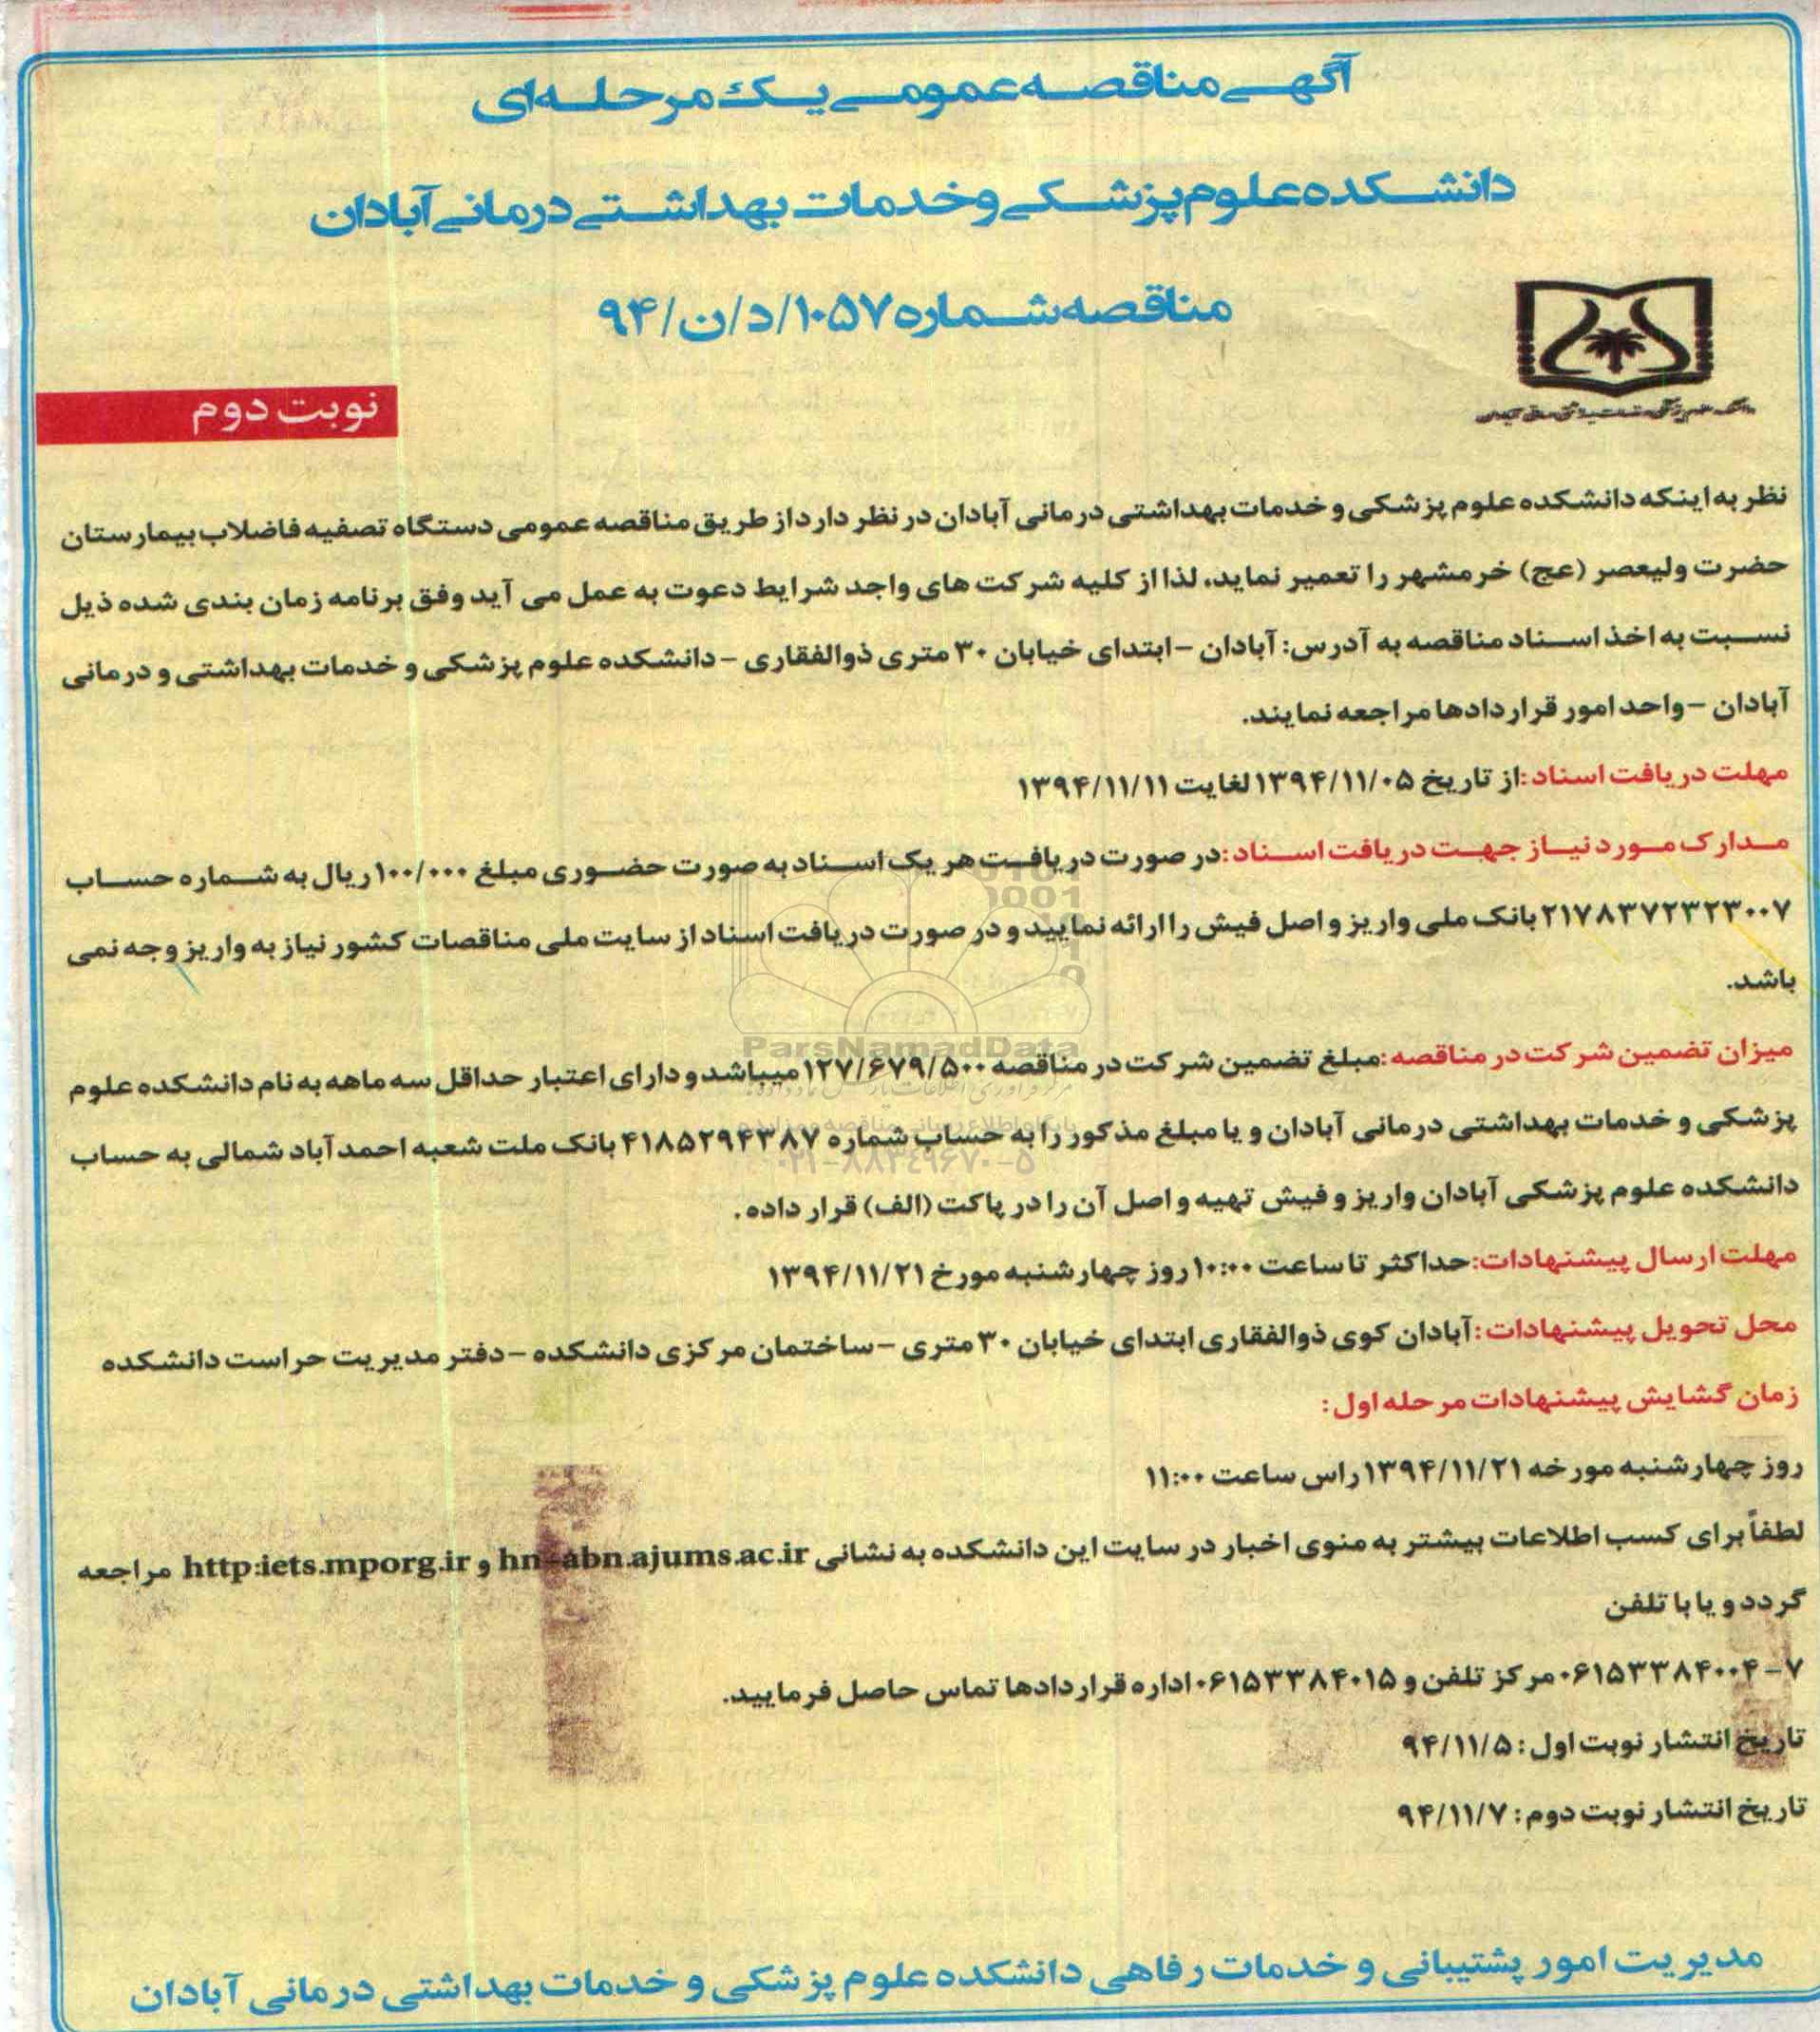 آگهی مناقصه عمومی یک مرحله‌ای
دانشکده علوم پزشکی و خدمات بهداشتی درمانی آبادان
مناقصه شماره ۱۰۵۷/د/ن/۹۴
نوبت دوم
نظر به اینکه دانشکده علوم پزشکی و خدمات بهداشتی درمانی آبادان در نظر دارد از طریق مناقصه عمومی دستگاه تصفیه فاضلاب بیمارستان
حضرت ولیعصر (عج) خرمشهر را تعمیر نماید، لذا از کلیه شرکت های واجد شرایط دعوت به عمل می آید وفق برنامه زمان بندی شده ذیل
نسبت به اخذ اسناد مناقصه به آدرس: آبادان -ابتدای خیابان ۳۰ متری ذوالفقاری -دانشکده علوم پزشکی و خدمات بهداشتی و درمانی
آبادان -واحد امور قراردادها مراجعه نمایند.
مهلت دریافت اسناد:از تاریخ ۱۳۹۴/۱۱/۰۵ لغایت ۱۳۹۴/۱۱/۱۱
مدارک مورد نیاز جهت دریافت اسناد:در صورت دریافت هر یک اسناد به صورت حضوری مبلغ ۱۰۰/۰۰۰ ریال به شماره حساب
۲۱۷۸۳۷۲۳۲۳۰۰۷ بانک ملی واریز و اصل فیش را ارائه نمایید و در صورت دریافت اسناد از سایت ملی مناقصات کشور نیاز به واریز وجه نمی
باشد.
میزان تضمین شرکت در مناقصه:مبلغ تضمین شرکت در مناقصه ۱۲۷/۶۷۹/۵۰۰ میباشد و دارای اعتبار حداقل سه ماهه به نام دانشکده علوم
پزشکی و خدمات بهداشتی درمانی آبادان و یا مبلغ مذکور را به حساب شماره ۴۱۸۵۲۹۴۳۸۷ بانک ملت شعبه احمدآباد شمالی به حساب
دانشکده علوم پزشکی آبادان واریز و فیش تهیه و اصل آن را در پاکت (الف) قرار داده.
مهلت ارسال پیشنهادات:حداکثر تا ساعت ۱۰:۰۰ روز چهارشنبه مورخ ۱۳۹۴/۱۱/۲۱
محل تحویل پیشنهادات: آبادان کوی ذوالفقاری ابتدای خیابان ۳۰ متری -ساختمان مرکزی دانشکده -دفتر مدیریت حراست دانشکده
زمان گشایش پیشنهادات مرحله اول:
روز چهارشنبه مورخه ۱۳۹۴/۱۱/۲۱ راس ساعت ۱۱:۰۰
لطفاً برای کسب اطلاعات بیشتر به منوی اخبار در سایت این دانشکده به نشانی hn-abn.ajums.ac.ir و http:iets.mporg.ir مراجعه
گردد و یا با تلفن
۰۶۱۵۳۳۸۴۰۰۴-۷ مرکز تلفن و ۰۶۱۵۳۳۸۴۰۱۵ اداره قراردادها تماس حاصل فرمایید.
تاریخ انتشار نوبت اول: ۹۴/۱۱/۵
تاریخ انتشار نوبت دوم: ۹۴/۱۱/۷
مدیریت امور پشتیبانی و خدمات رفاهی دانشکده علوم پزشکی و خدمات بهداشتی درمانی آبادان
ParsNamadData
۰۲۱-۸۸۳۴۹۶۷۰-۵